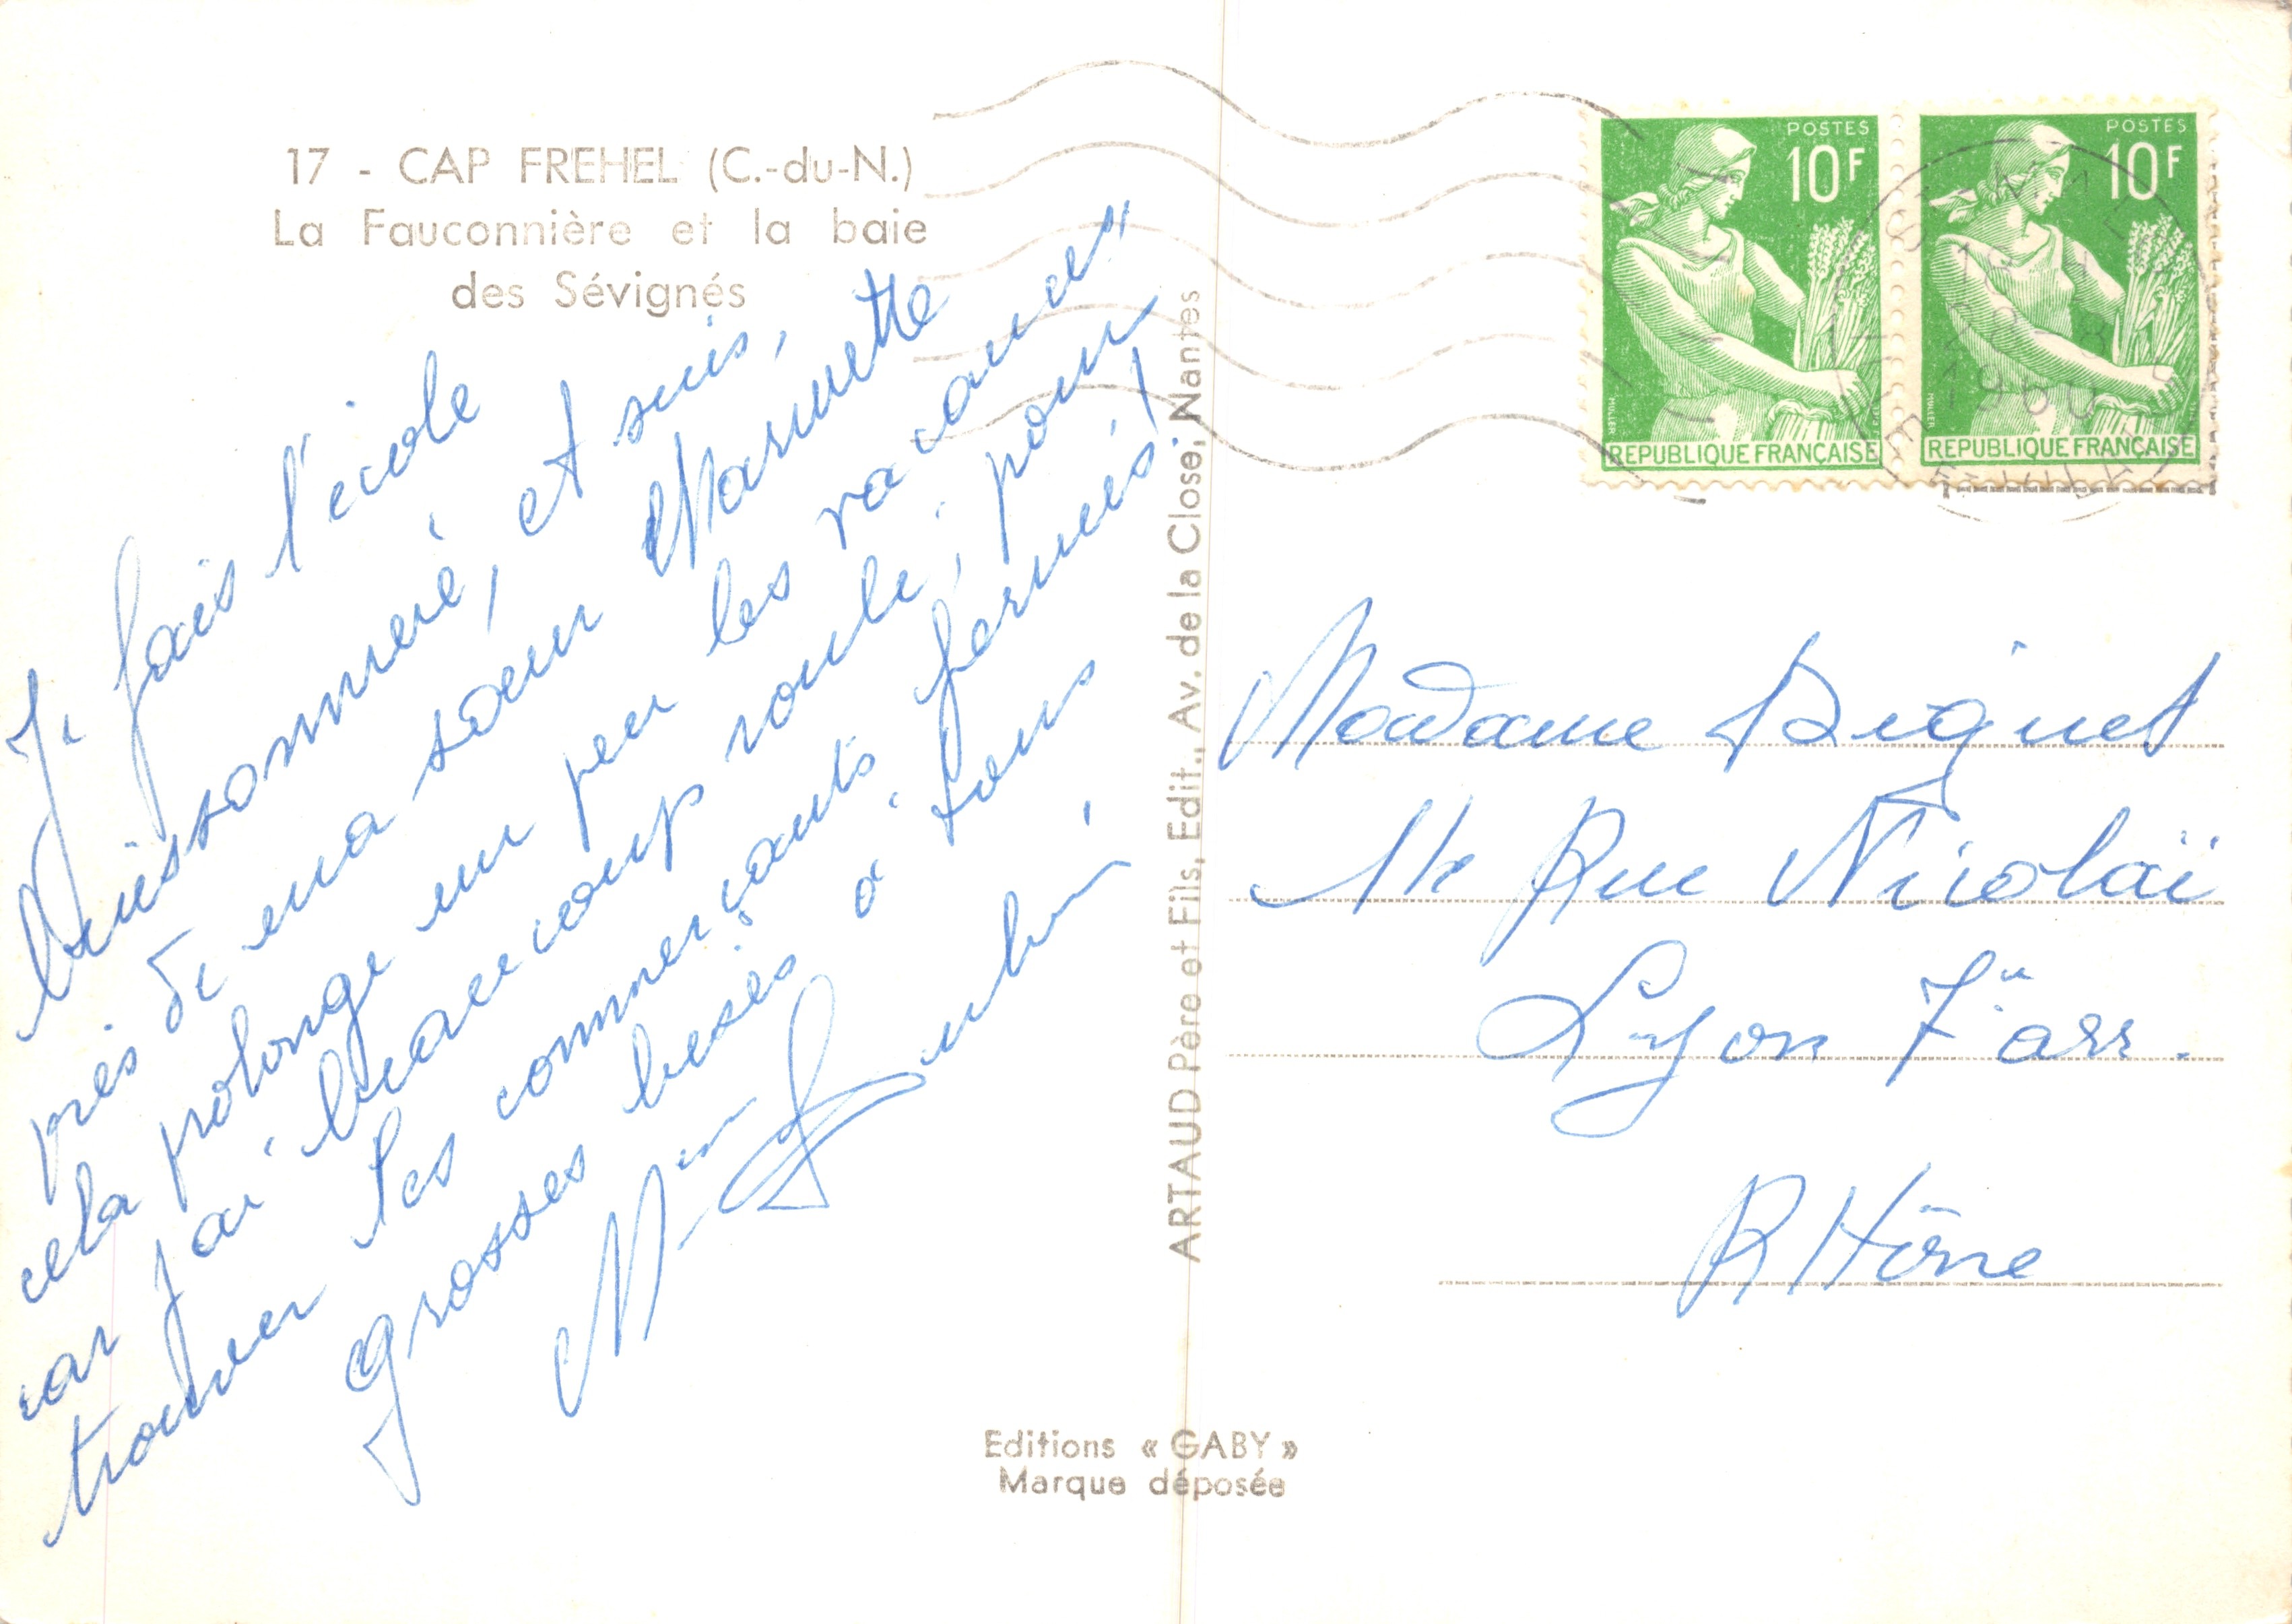 17 - CAP FREHEL (C.-du-N.)
La Fauconnière et la baie
des Sévignés
Je fais l'école
buissonnière, et suis,
près de ma sœur Marinette
cela prolonge un peu les vacances
car j'ai beaucoup roulé, pour
trouver les commerçants fermés !
grosses bises à tous
ARTAUD Père et Fils, Edit., Av. de la Close, Nantes
Editions « GABY »
Marque déposée
POSTES
10F
MULLER
REPUBLIQUE FRANÇAISE
POSTES
10F
MULLER
REPUBLIQUE FRANÇAISE
1960
Madame
Rue Nicolaï
Lyon 7è arr.
RHône